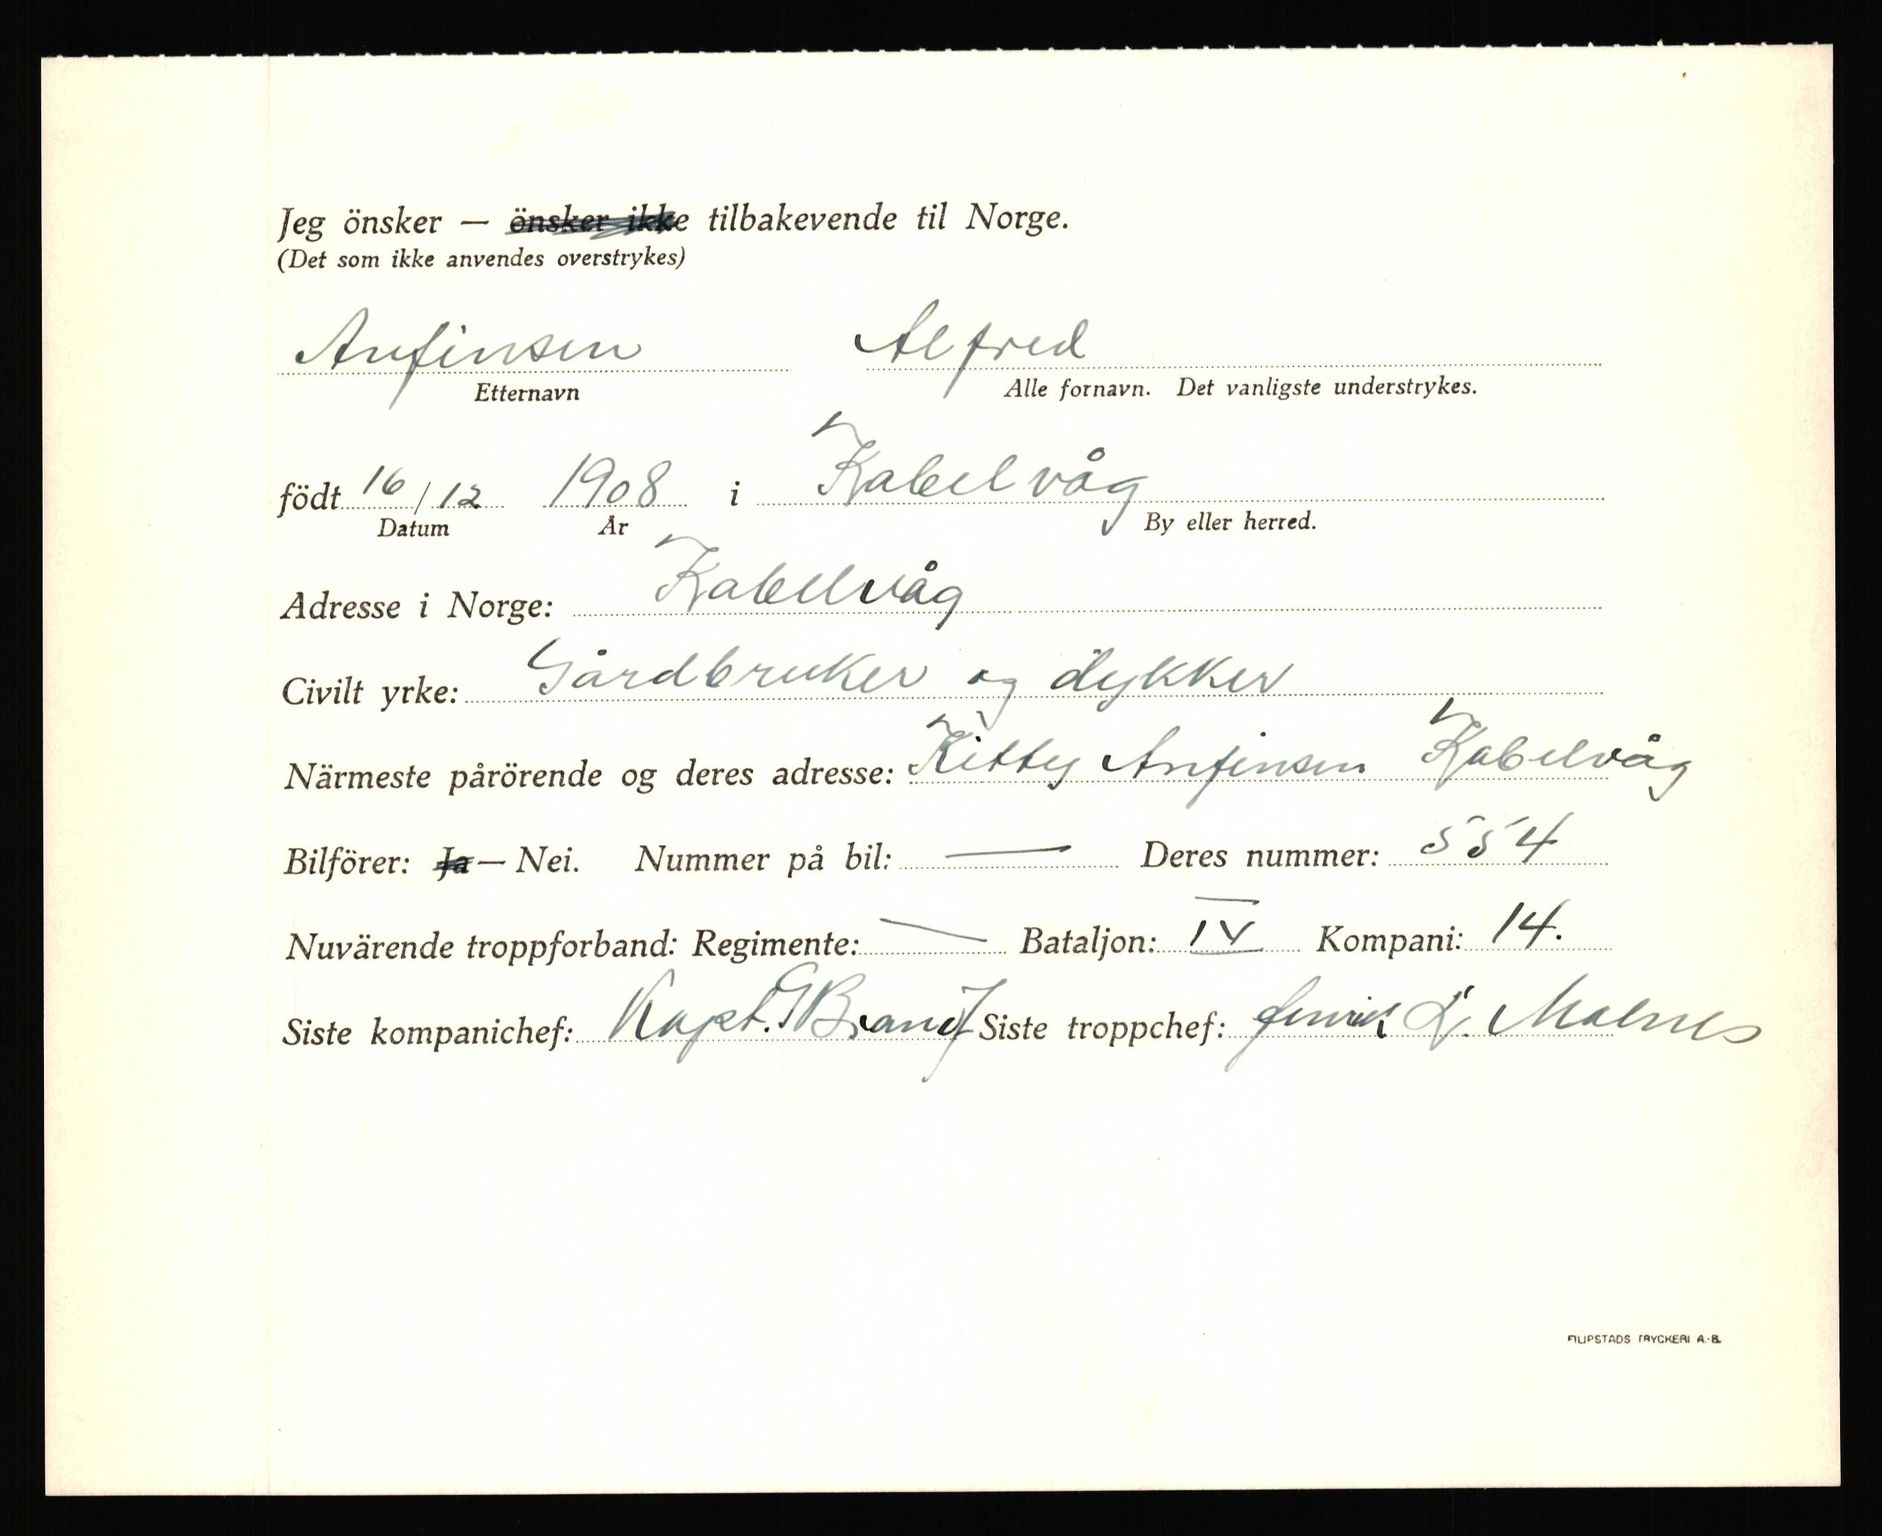 Jeg önsker — önsker ikke tilbakevende til Norge.
(Det som ikke anvendes overstrykes)
Anfinsen Alfred
Etternavn Alle fornavn. Det vanligste understrykes.
födt 16/12 1908 i Kabelvåg
Datum År By eller herred.
Adresse i Norge: Kabelvåg
Civilt yrke: Gårdbruker og dykker
Närmeste pårörende og deres adresse: Kitty Anfinsen Kabelvåg
Bilförer: Ja — Nei. Nummer på bil: — Deres nummer: 554
Nuvärende troppforband: Regimente: — Bataljon: IV Kompani: 14.
Siste kompanichef: Kapt. Siste troppchef: L.
FILIPSTADS TRYCKERI A.-B.